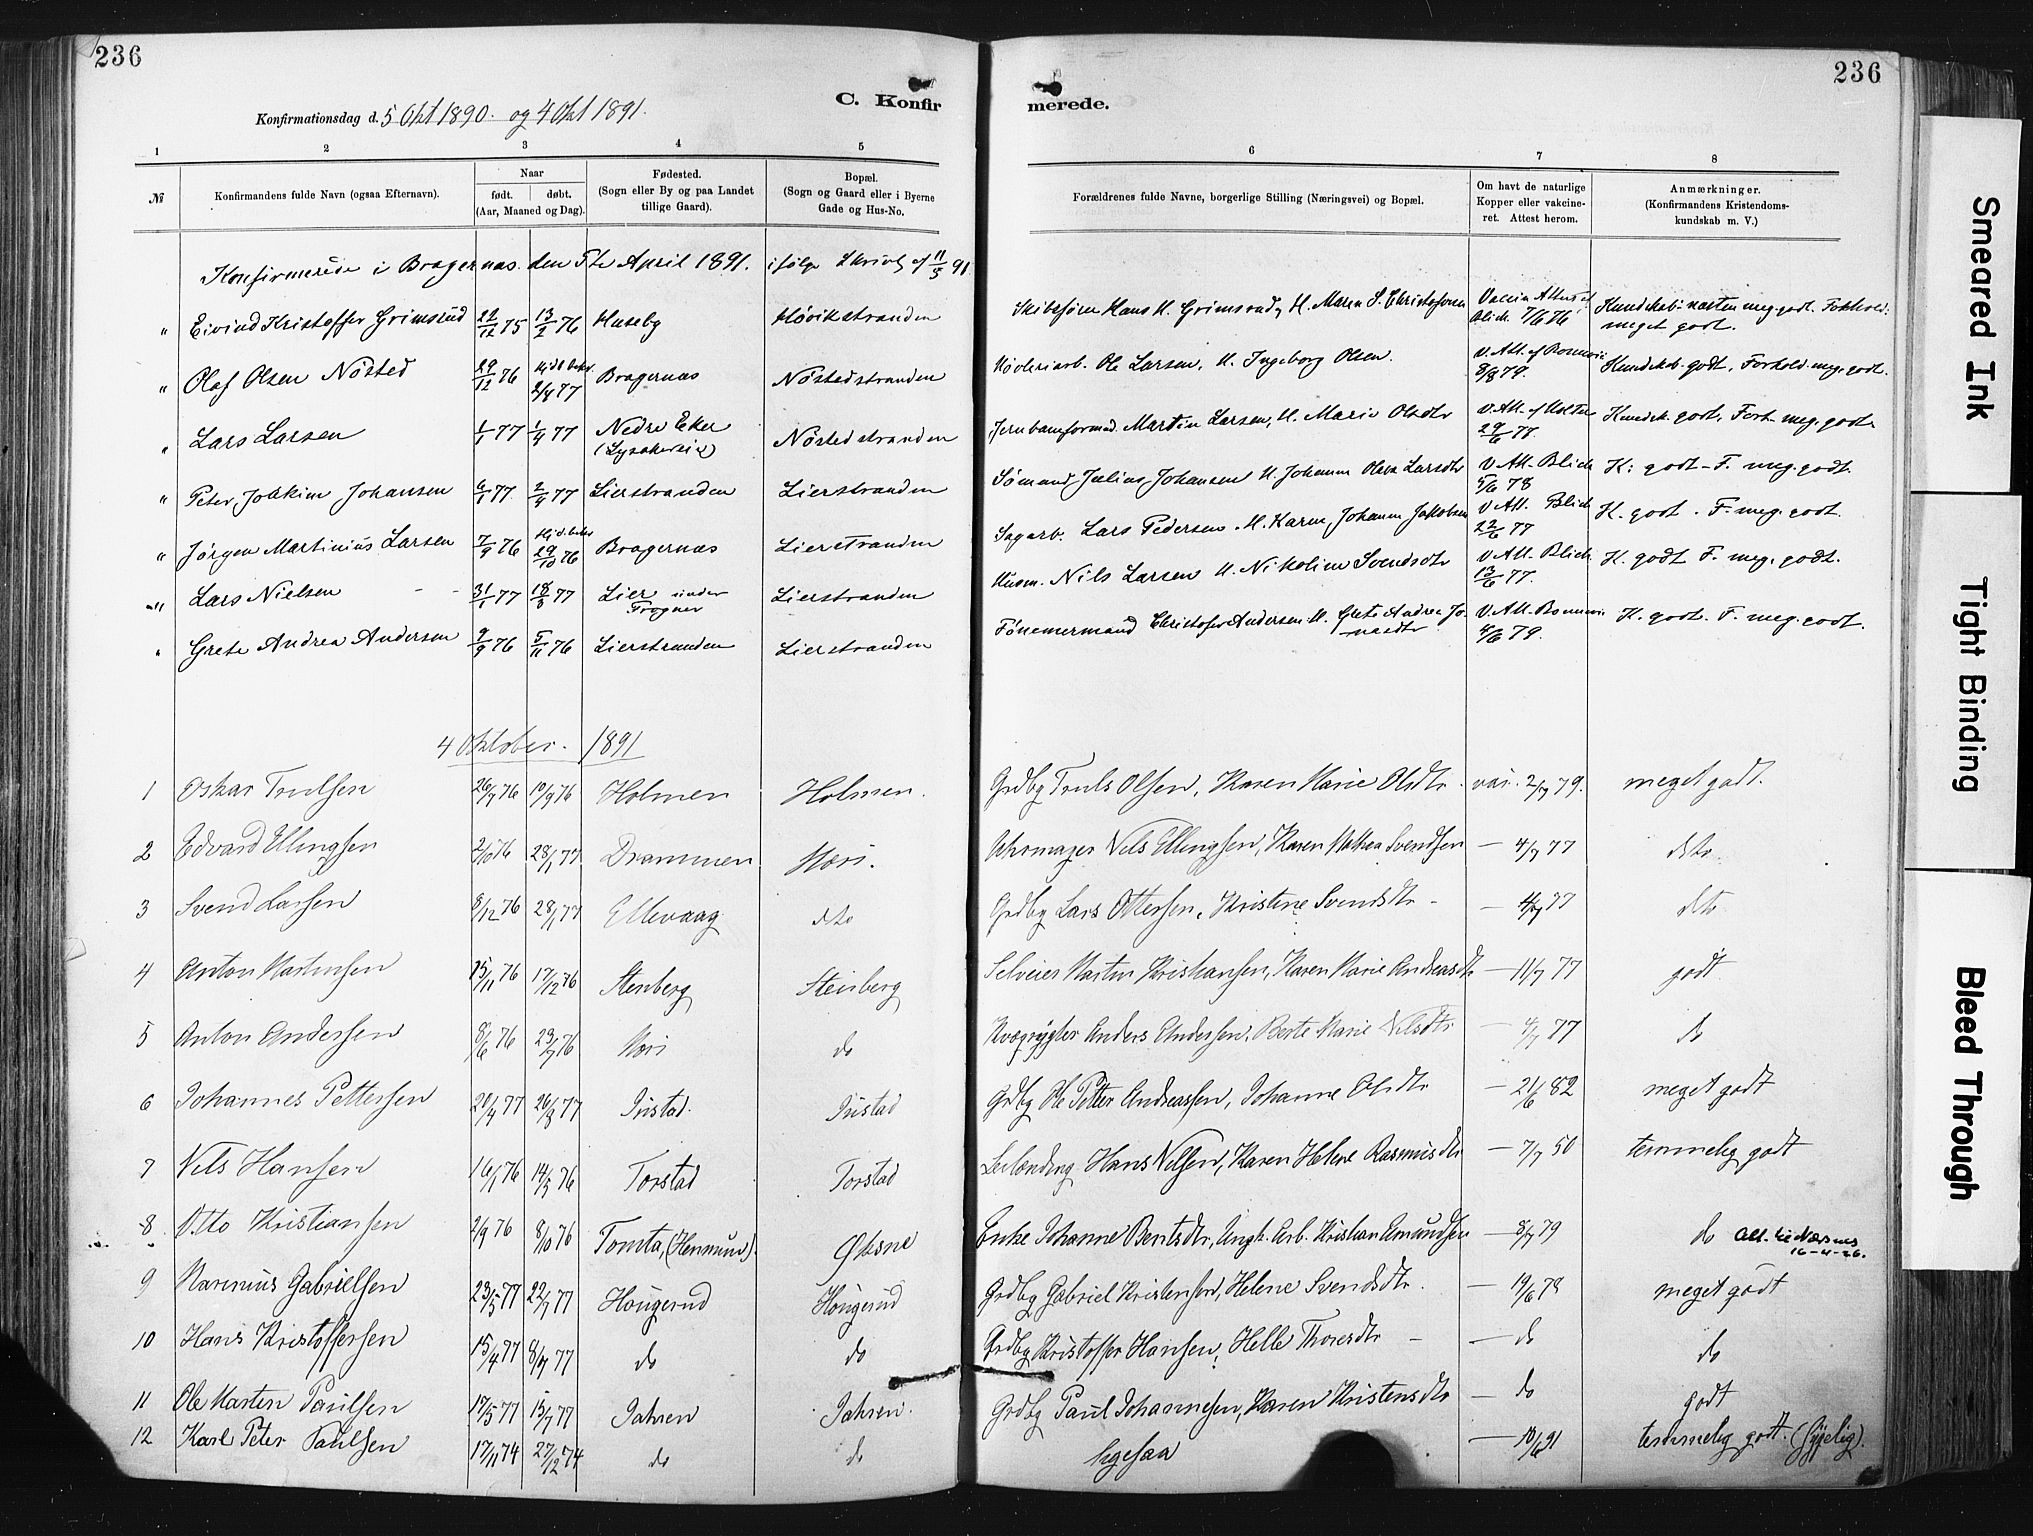 236
236
C. Konfir
merede.
Konfirmationsdag d. 5 Okt 1890. og 4 Okt 1891.
1 2 3 4 5 6 7 8
№
Konfirmandens fulde Navn (ogsaa Efternavn).
Naar
født. døbt.
(Aar, Maaned og Dag).
Fødested.
(Sogn eller By og paa Landet
tillige Gaard).
Bopæl.
(Sogn og Gaard eller i Byerne
Gade og Hus-No.
Forældrenes fulde Navne, borgerlige Stilling (Næringsvei) og Bopæl.
Om havt de naturlige
Kopper eller vakcine-
ret. Attest herom.
Anmærkninger.
(Konfirmandens Kristendoms-
kundskab m. V.)
Konfirmerede i Bragernas den 5te April 1891. ifølge Skriv af 11/5 91
" Eivind Kristoffer Grimsrud 22/12 75 13/2 76 Huseby Høvikstranden Skibstøm Hans H. Grimsrud, H. Maren S. Christofersen Vaccin Attest Blich 7/6 76 Kundskab næsten meg godt. Forhold: meget godt.
" Olaf Olsen Nøsted 29/12 76 Hjdt bekr. 2/4 77 Bragernas Nøstedstranden Høvleriarb. Ole Larsen, H. Ingeborg Olsen. V. Att. af 8/8 79. Kundskab godt, Forhold meg. godt.
" Lars Larsen 1/1 77 1/4 77 Nedre Eker (Lysakerseie) Nøstedstranden Jernbaneformd. Martin Larsen, H. Marie Olsdtr V. Att. af Holter 29/6 77. Kundsk. godt, Forh. meg. godt.
" Peter Joakim Johansen 6/1 77. 2/4 77 Lierstranden Lierstranden Sømand Julius Johansen H. Johanne Olava Larsdtr V Att. Blich 5/6 78 K: godt - F. meg. godt.
" Jørgen Martinius Larsen 7/9 76 Hjd. bekr 29/10 76 Bragernas Lierstranden Sagarb. Lars Pedersen H. Karen Johanne Jakobsen V Att. Blich 22/6 77 K. godt. F. meg. godt.
" Lars Nielsen 31/1 77 18/3 77 Lier under Frogner Lierstranden Husm. Nils Larsen H. Nikoline Svendsdtr V Att. Blich 13/6 77. K. godt F. meg. godt.
" Grete Andrea Andersen 9/9 76 5/11 76 Lierstranden Lierstranden Tønemermand Christofer Andersen H. Grete Andrea Jonasdtr V. Att. 4/6 79. K. godt. F. meg. godt.
4 Oktober. 1891
1 Oskar Trulsen 26/7 76 10/9 76 Holmen Holmen. Grdbg Truls Olsen, Karen Marie Olsdtr. vac. 2/7 79. meget godt.
2 Edvard Ellingsen 2/10 76 28/1 77 Drammen Høri. Uhrmager Nils Ellingsen, Karen Mathea Svendsen — 4/7 77 dto
3 Svend Larsen 8/12 76 28/1 77 Ellevaag dto Grdbg Lars Ottersen, Kristine Svendsdtr — 4/7 77 dto
4 Anton Martinsen 15/11 76 17/12 76 Stenberg Steinberg Selveier Martin Kristiansen, Karen Marie Andreasdtr — 11/7 77 godt
5 Anton Andersen 8/6 76 23/7 76 Høri do Kvægrygter Anders Andersen, Berte Marie Nilsdtr — 4/7 77 do
6 Johannes Pettersen 20/4 77 26/8 77 Justad. Justad Grdbg Ole Petter Andreassen, Johanne Olsdtr — 21/6 82 meget godt
7 Nils Hansen 16/1 76 14/5 76 Torstad Torstad Leilænding Hans Nilsen, Karen Helene Rasmusdtr — 7/7 50 temmelig godt
8 Otto Kristiansen 2/9 76 8/10 76 Tomta, (Hennum) Øksne Enke Johanne Berntsdtr, Ungk. Arb. Kristian Amundsen — 8/7 79 do Att. til Næsnes 16-4-26.
9 Marenius Gabrielsen 23/5 77 22/7 77 Hougerud Hougerud Grdbg Gabriel Kristensen, Helene Svendsdtr. — 19/6 78 meget godt
10 Hans Kristoffersen 15/4 77 8/7 77 do do Grdbg Kristoffer Hansen, Helle Thoresdtr — — do do
11 Ole Martin Paulsen 17/5 77 15/7 77 Jahren Jahren. Grdbg Paul Johannesen, Karen Kristensdtr — do godt
12 Karl Peter Paulsen 17/11 74 27/12 74 do do ligesaa — 10/6 91 temmelig godt. (sygelig).
Smeared Ink
Tight Binding
Bleed Through